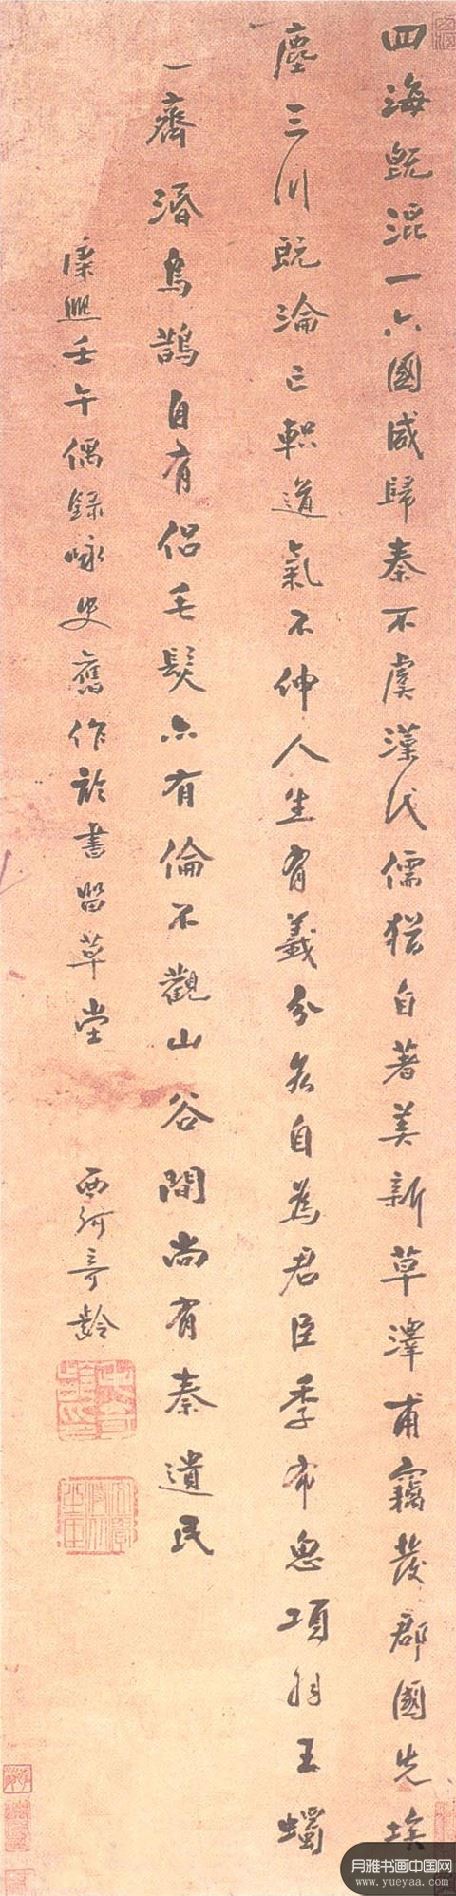 四海既混一六國咸歸秦不虞漢代儒猶自著美新草澤甫竊發郡國先埃
塵三川既淪亡軹道氣不伸人生有義分各自為君臣季布項羽王蠋
一齊湣烏鵲自有侶毛髮亦有倫不觀山谷間尚有秦遺民
康熙壬午偶錄咏史舊作於書留草堂
西河奇齡
月雅书画中国网
www.yueyaa.com